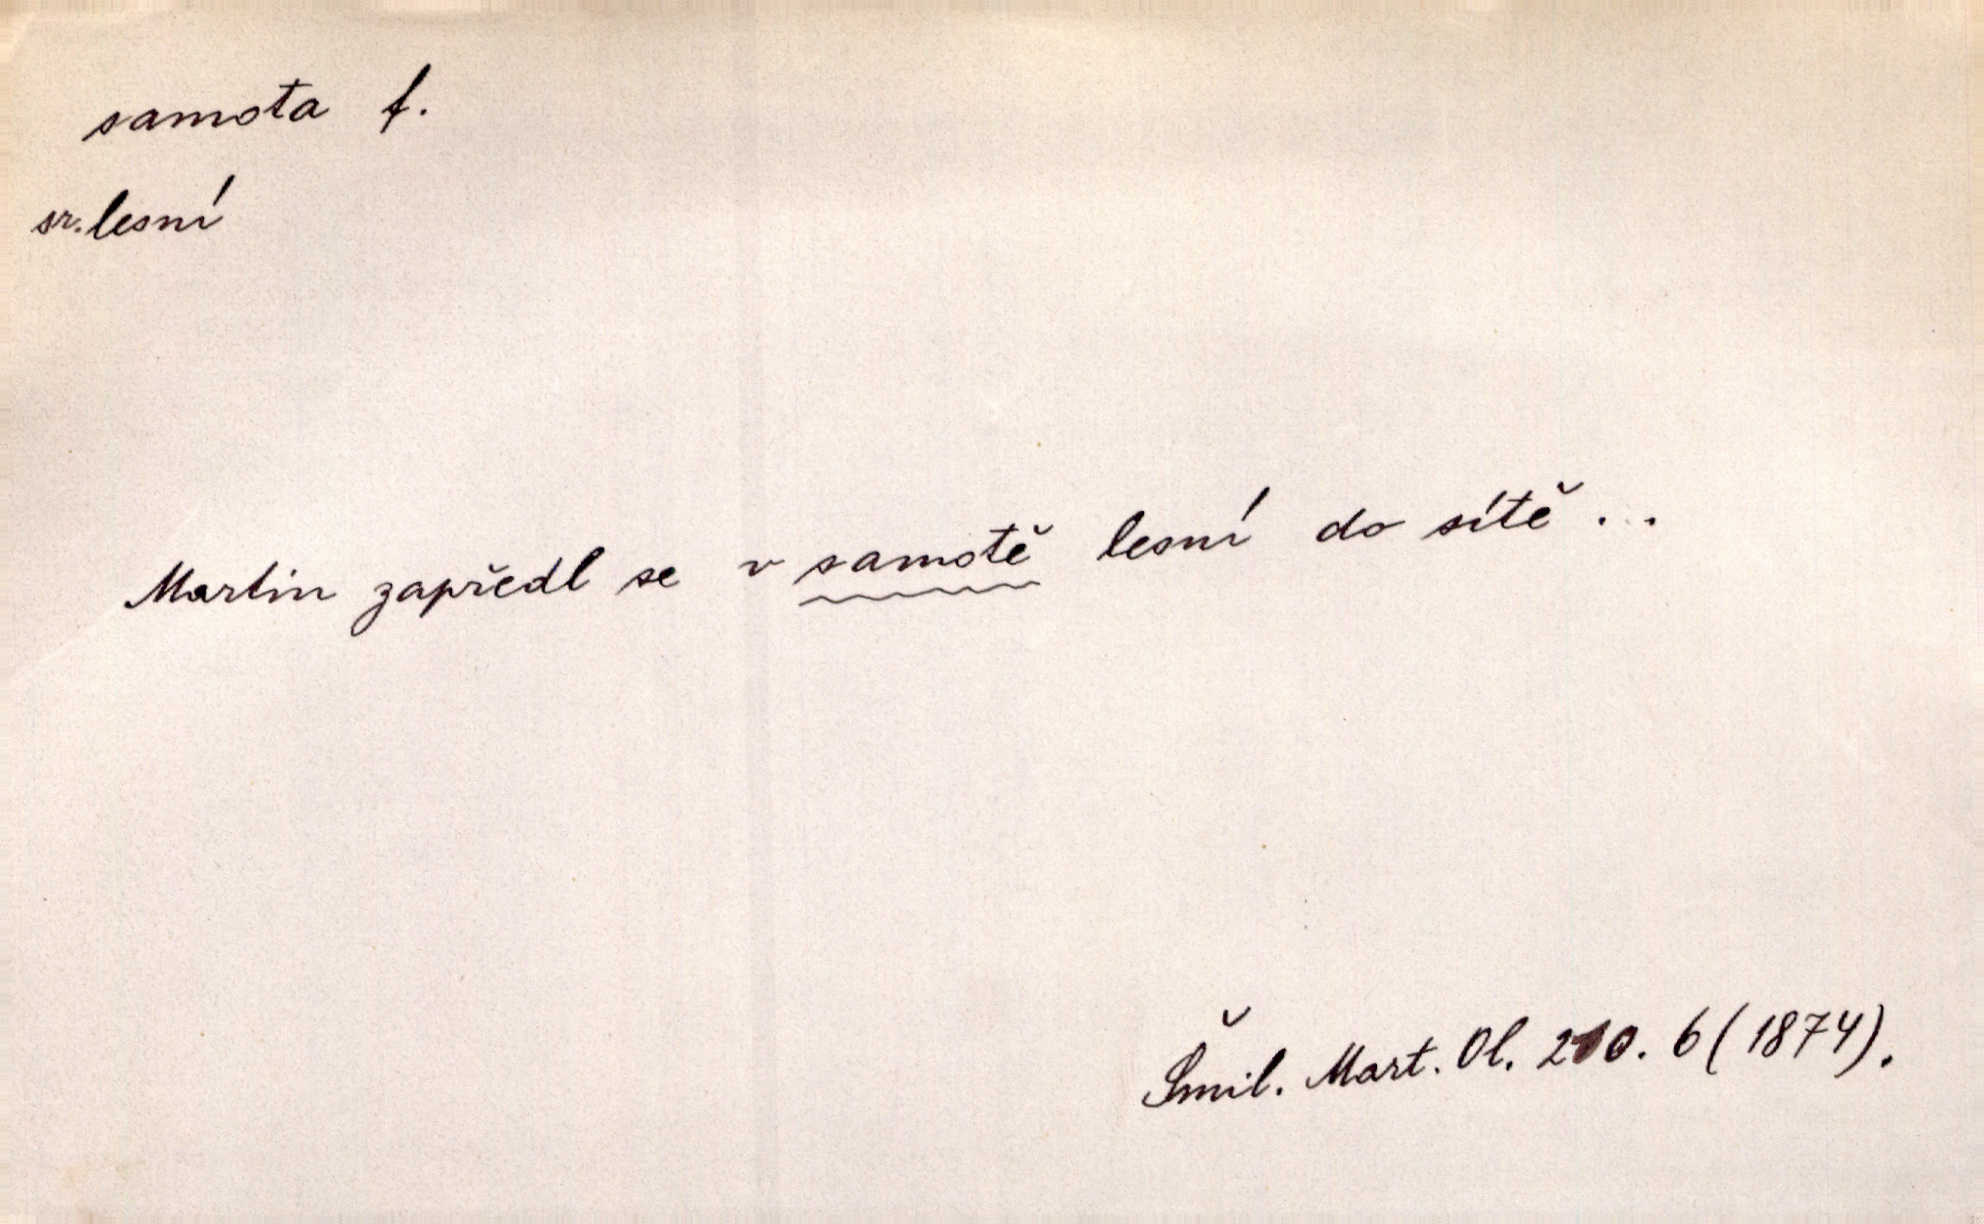 samota f.
sr. lesní
Martin zapředl se v samotě lesní do sítě...
Šmil. Mart. Ol. 210. 6 (1874).